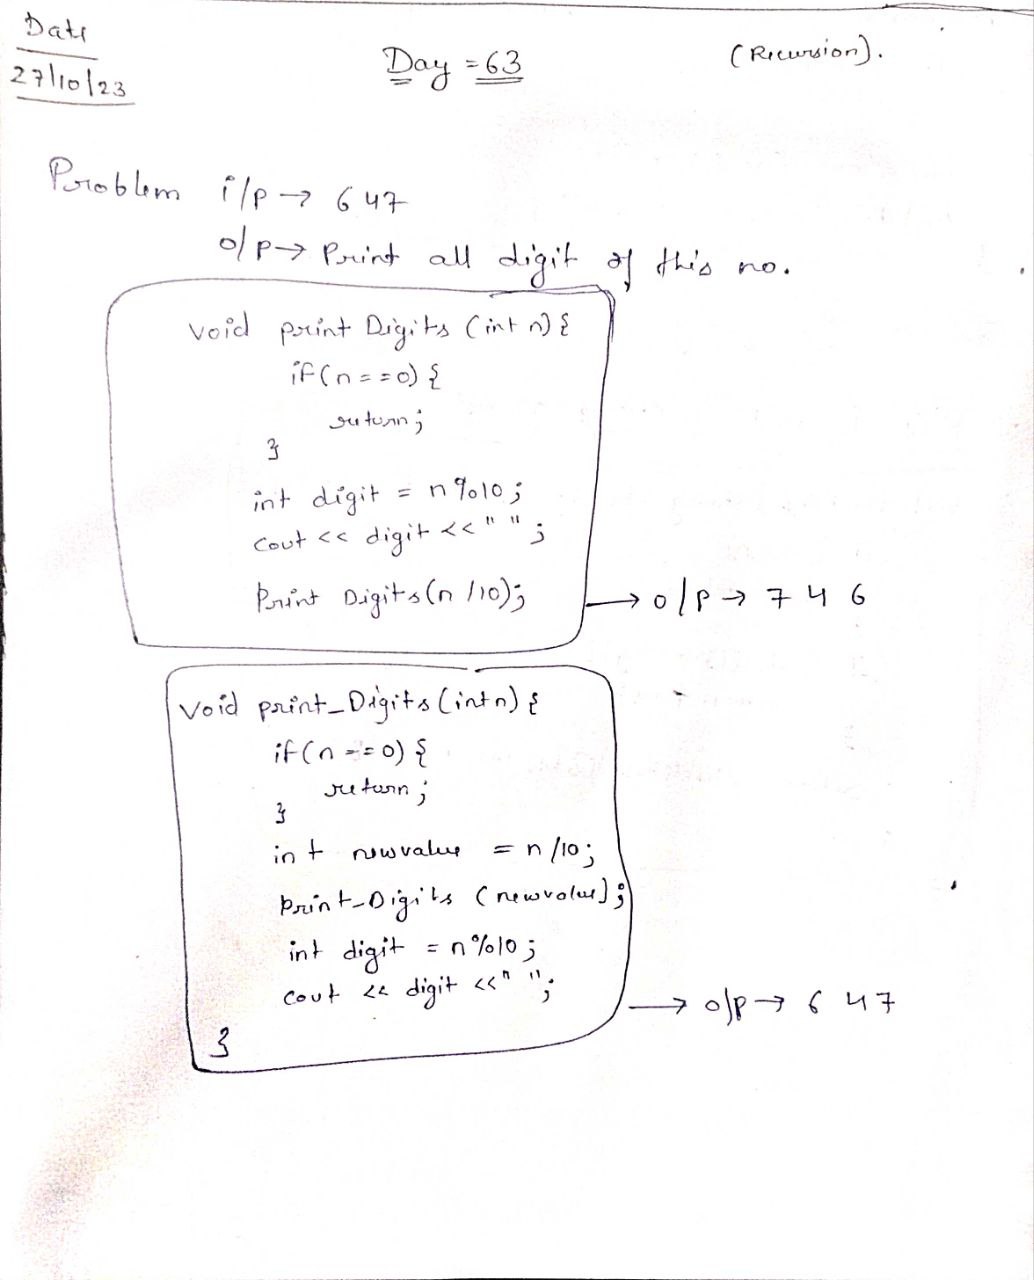 Date
27/10/23
Day = 63
(Recursion).
Problem i/p → 647
o/p → Print all digit of this no.
void print Digits (int n) {
if (n == 0) {
return;
}
int digit = n % 10;
cout << digit << " ";
Print Digits (n /10);
→ o/p → 7 4 6
void print_Digits (int n) {
if (n == 0) {
return;
}
int newvalue = n /10;
print_Digits (newvalue);
int digit = n%10;
cout << digit << " ";
→ o/p → 6 4 7
}